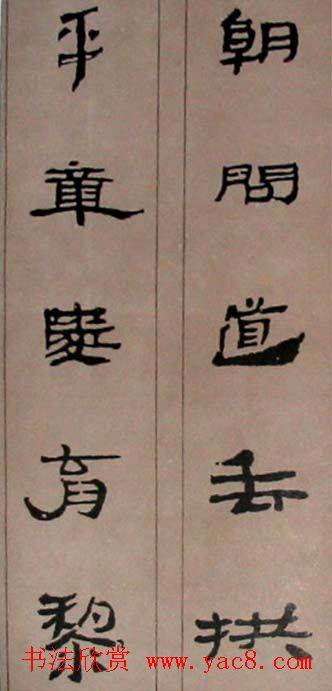 朝問道垂拱
平章愛育黎
书法欣赏 www.yac8.com